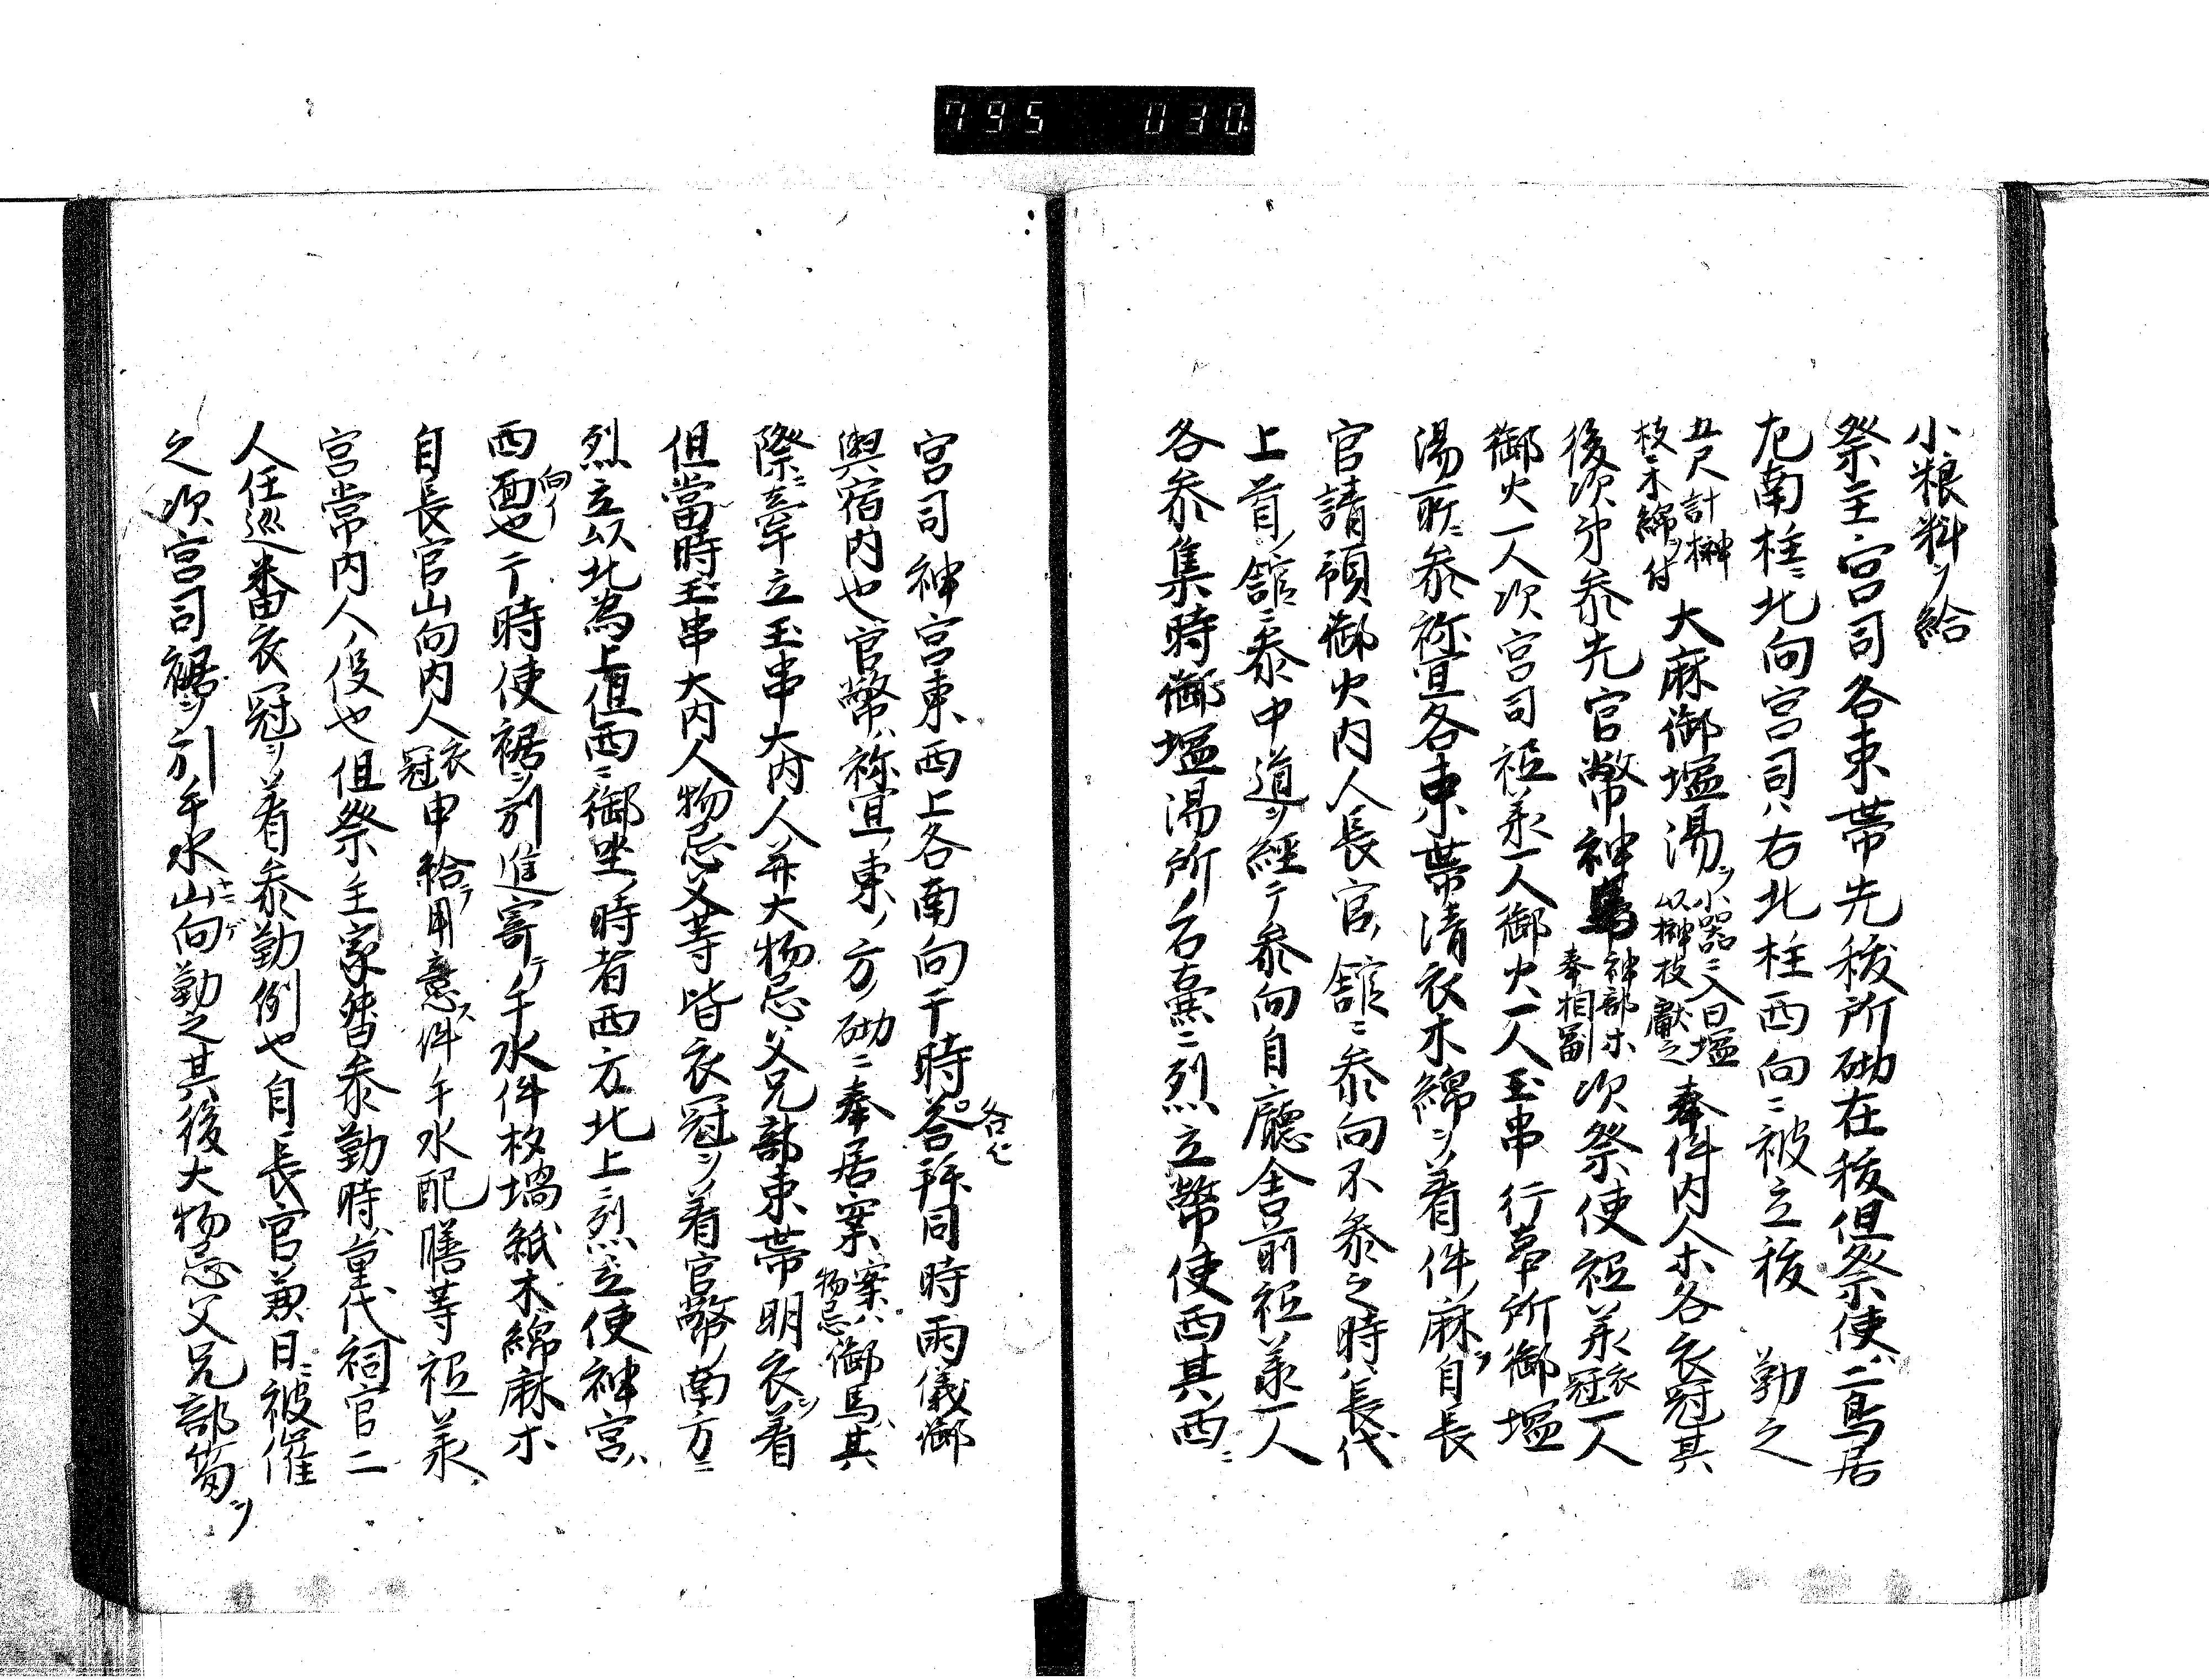 795 030.
小粮料ヲ給
祭主宮司各束帯先祓所砌在祓但祭使ハ二鳥居
左南柱ニ北向宮司ハ右北柱西向ニ被立祓 勤之
五尺計榊
枝ニ木綿ヲ付 大麻御塩湯ヲ 小器ニ入白塩
以榊枝献之 奉件内人ホ各衣冠其
後次第参先官幣神馬 神部ホ
奉相副 次祭使祗承 衣
冠 一人
御火一人次宮司祗承一人御火一人玉串行事所御塩
湯所ニ参祢宜各束帯清衣木綿ヲ着件ノ麻ヲ自長
官請預御火内人長官ノ舘ニ参向不参之時ハ長代
上首ノ舘ニ参中道ヲ經テ参向自廳舎前祗承一人
各参集時御塩湯所ノ石壷ニ烈立幣使西其西ニ
宮司神宮東西上各南向于時答拝同時両儀御
各ヒ
輿宿内也官幣ハ祢宜東ノ方ノ砌ニ奉居案 案ハ
物忌 御馬ハ其
際ニ牽立玉串大内人并大物忌父兄部束帯明衣ヲ着
但當時ハ玉串大内人物忌父等皆衣冠ヲ着官幣ノ南方ニ
烈立以北為上但西ニ御坐ノ時者西方北上ニ烈立使神宮ハ
西面也于時使裾ヲ引進寄テ手水件枚塙紙木綿麻ホ
向イ
自長官山向内人 衣
冠 申給ヲ用意ス件手水配膳等祗承
宮掌内人ノ役也但祭主家督参勤時ハ重代祠官二
人任巡番衣冠ヲ着参勤例也自長官兼日ニ被催
之次宮司裾ヲ引手水山向勤之其後大物忌父兄部笏ヲ